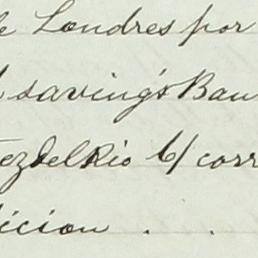 e Londres por
l saving's Ban
ezdelRio C/ corr
icion . .